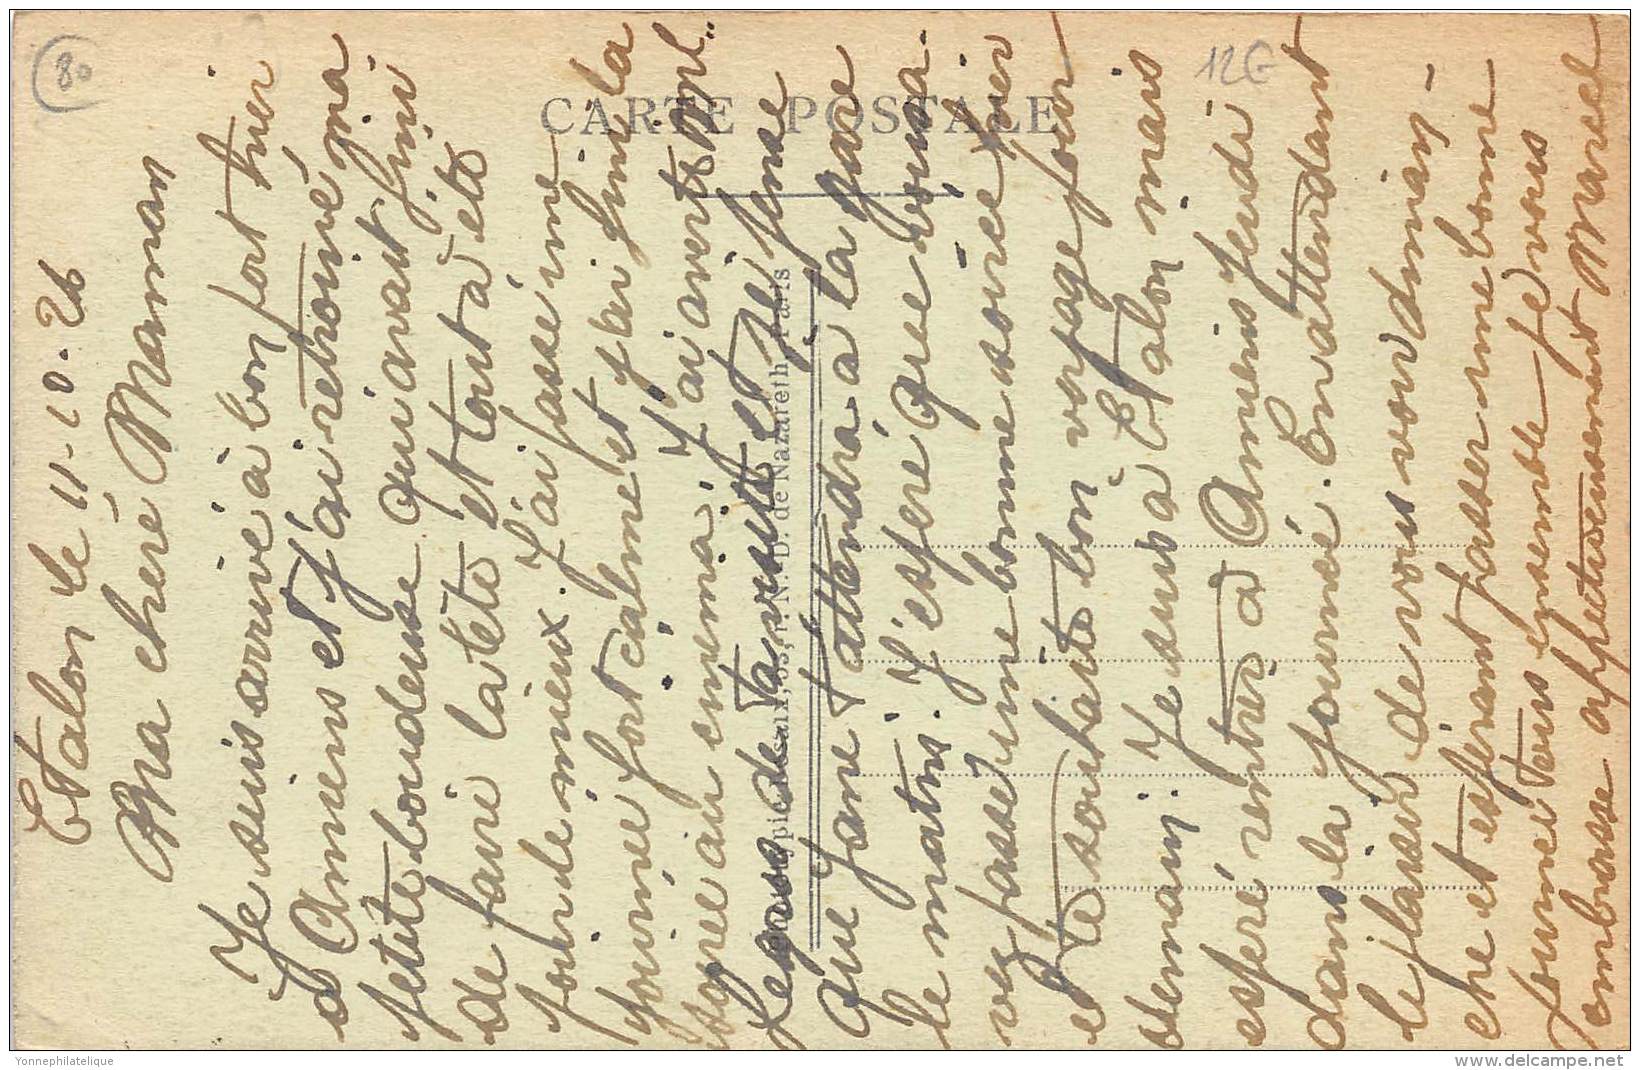 Etalon le 11-10-26
Ma cheré Maman
Je suis arrivé à bon port hier
a Amiens et j'ai retrouvé ma
petite boudeuse qui avait fini
de faire la tête et tout à été
pour le mieux. J'ai passé une
journée fort calme et j'ai fini la
soirée au cinema. J'ai averti Mel..
Legauss de ta visite et je pense
que Jane t'attendra à la gare
le matin. J'espère que vous a.
vez passé une bonne soirée hier
et te souhaite bon voyage pour
demain. Je suis à Etalon mais
espére rentrer à Amiens Jeudi
dans la journée. En attendant
le plaisir de vous voir diman-
che et esperant passer une bonne
journée tous ensemble je vous
embrasse affectueusement Marcel
CARTE POSTALE
N.-D. de Nazareth Paris
80
12€
Yonnephilatelie
www.delcampe.net